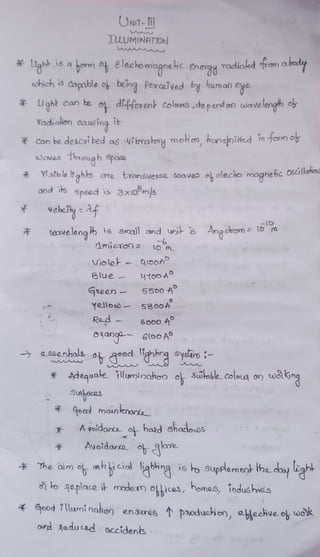 UNIT-III
ILLUMINATION
* Light is a form of Electromagnetic Energy radiated from a body
which is capable of being perceived by human eye
* Light can be of different colours, depend on wavelength of
radiation causing it
* Can be described as vibratory motion, transmitted in form of
waves through space
* Visible lights are transverse waves of electro magnetic oscillation
and its speed is 3×10⁸m/s
* velocity = λf
* wavelength is small and unit is Angstrom = 10⁻¹⁰ m
1micron = 10⁻⁶ m.
Violet - 4100A°
Blue - 4400 A°
Green - 5500 A°
Yellow - 5800A°
Red - 6000 A°
orange - 6100 A°
→ essentials of good lighting system :-
* Adequate illumination of suitable colour on walking
surfaces
* Good maintenance
* Avoidance of hard shadows
* Avoidance of glare
* The aim of artificial lighting is to supplement the day light
or to replace it modern offices, homes, industries
* Good illumination ensures ↑ production, effective of work
and reduced accidents